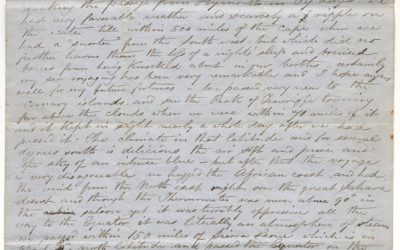 making the passage from Plymouth in days. We
had very favorable weather and scarcely a ripple on
the water till within 500 miles of the Cape when we
had a "snorter" from the South west but which did us no
further harm than the loss of a night's sleep and bruised
bones from being knocked about in our berths. certainly
my sea voyaging has been very remarkable and I hope augurs
well for my future fortunes - we passed very near to the
Canary islands, and saw the Peak of Teneriffe towering
far above the clouds when we were within 40 miles of it
and it kept in sight nearly a whole day after we had
passed it. The climate in that latitude and for several
degrees south is delicious the air soft and pure and
the sky of an intense blue - but after that the voyage
is very disagreeable we hugged the African coast and had
the wind from the North east right over the great Sahara
desert and though the Thermometer was never above 90° in
the saloon yet it was terribly oppressive all the
way to the Equator it was literally an atmosphere of steam
we passed within 150 miles of Sierra Leone which is in
north latitude and passed the Equator on the